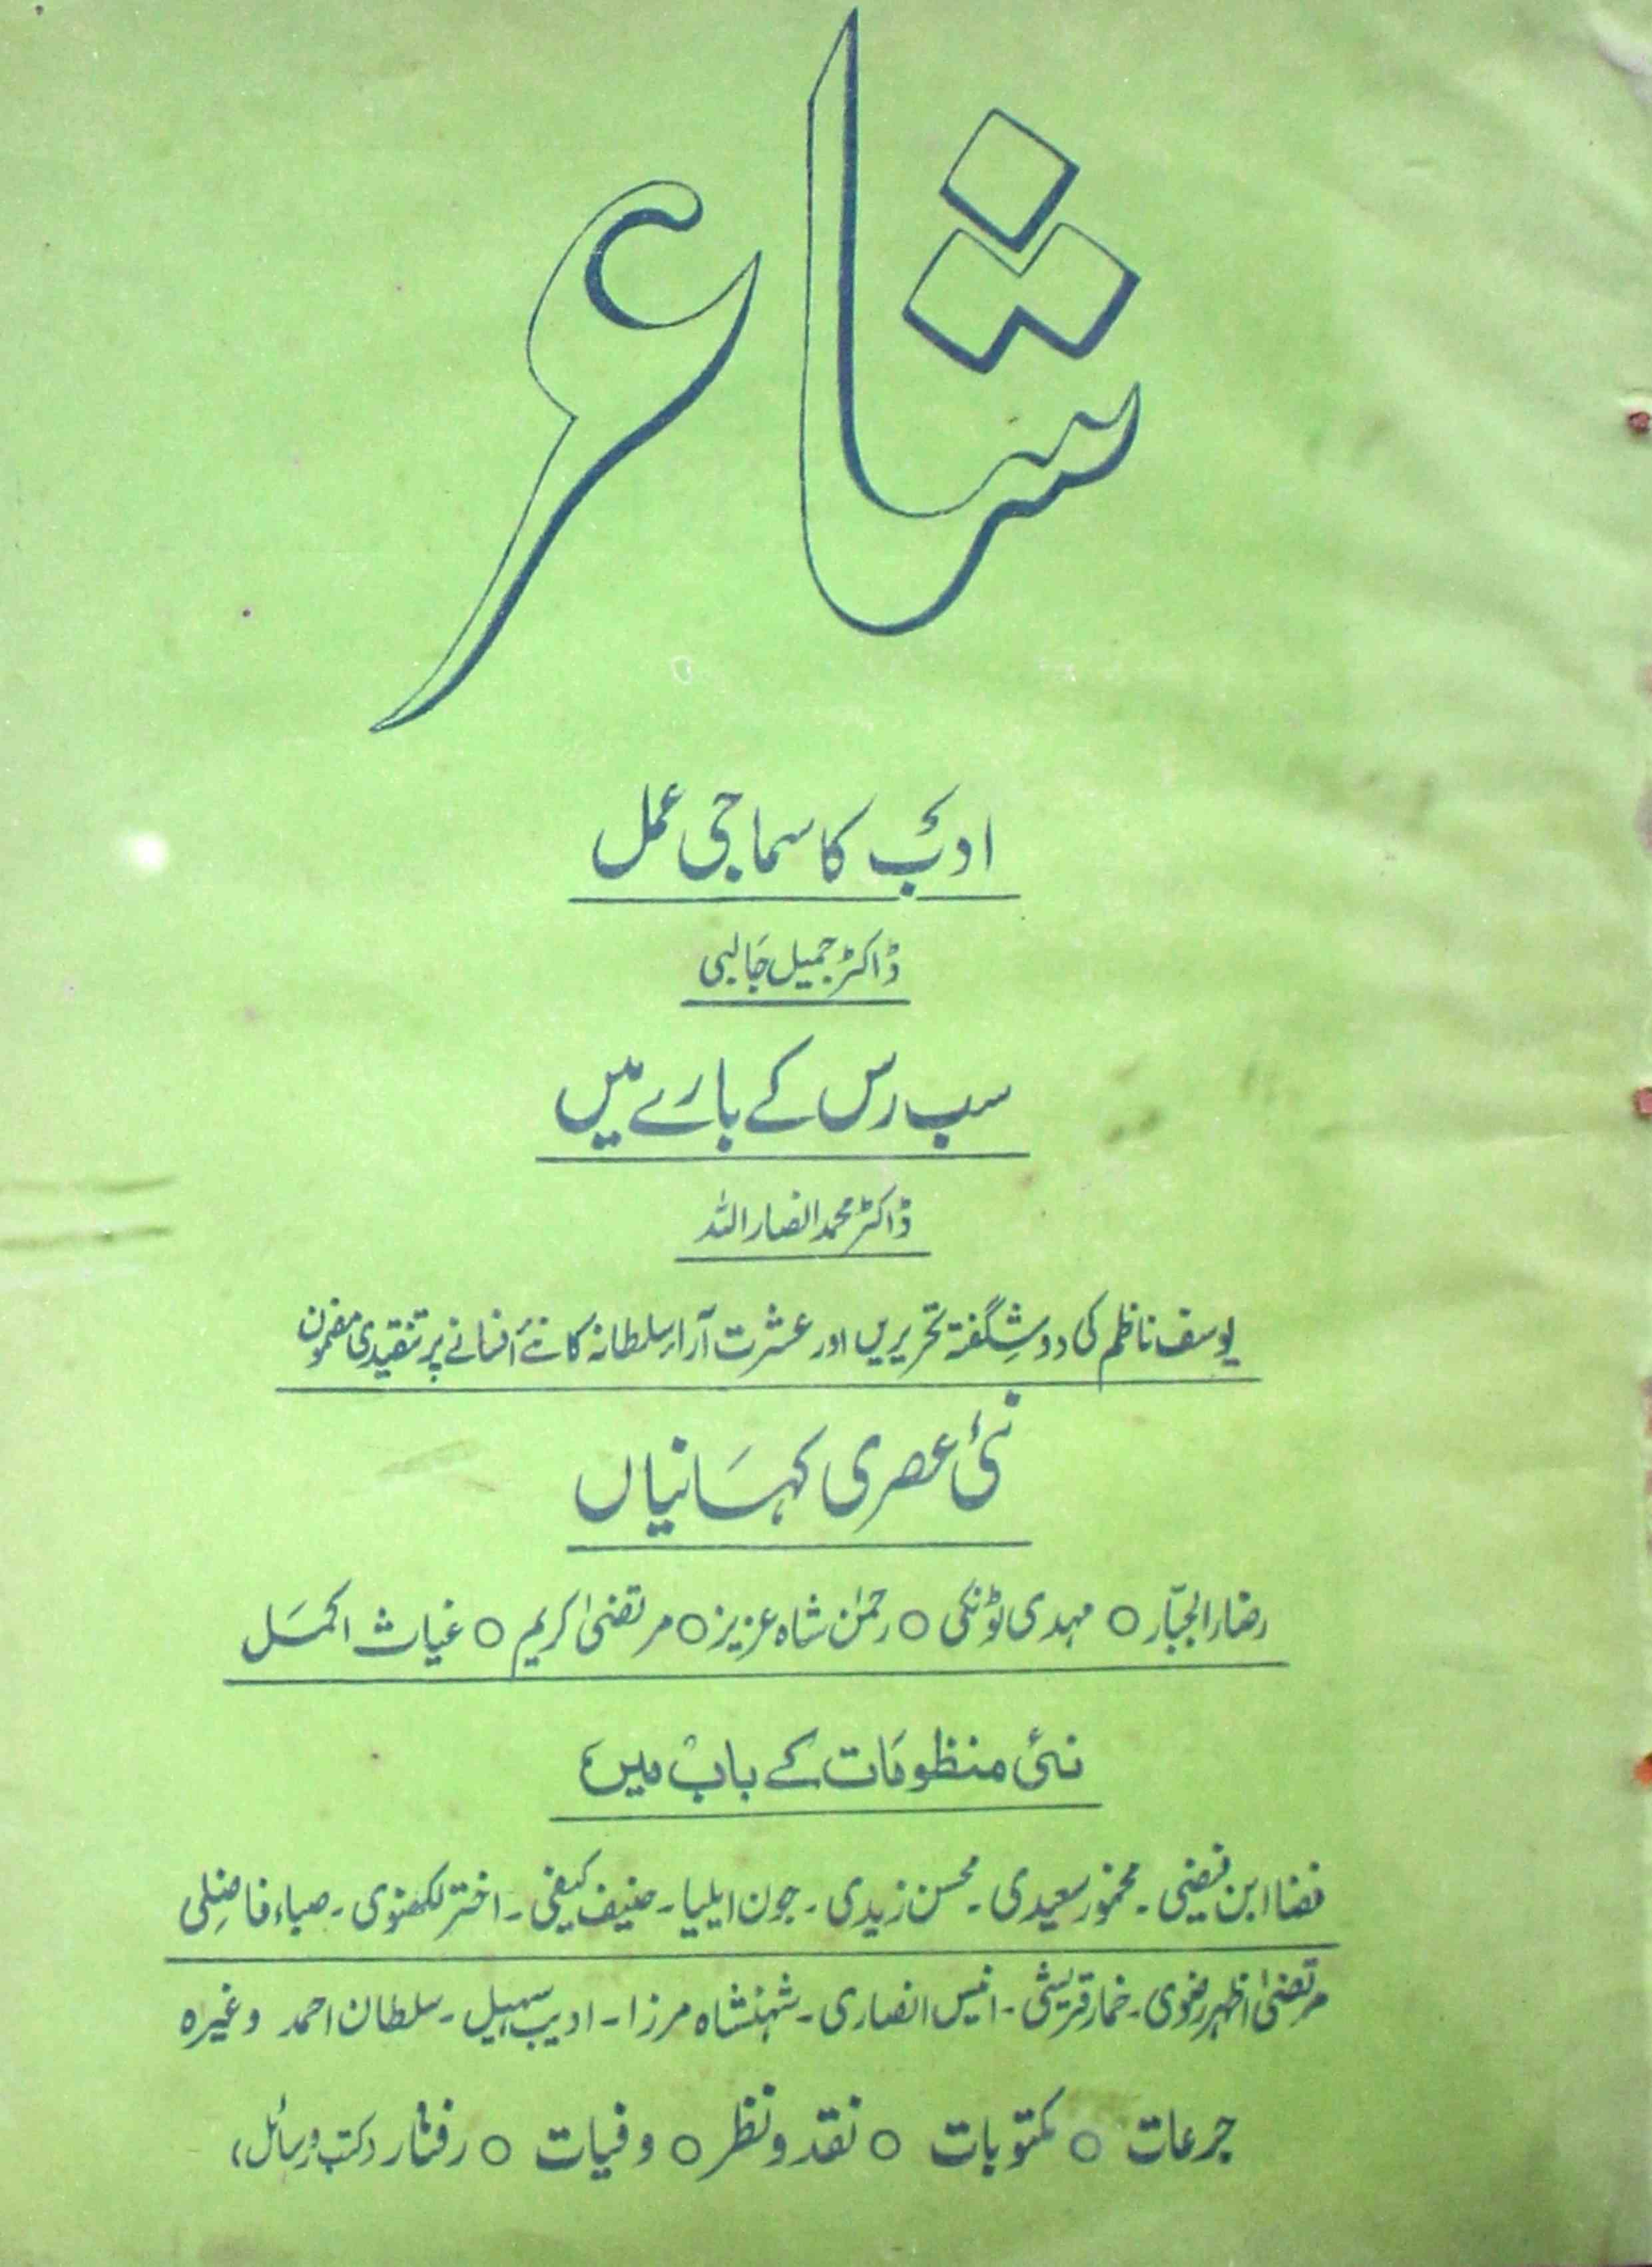 شاعر
ادب کا سماجی عمل
ڈاکٹر جمیل جالبی
سب رس کے بارے میں
ڈاکٹر محمد انصار اللہ
یوسف ناظم کی دو شگفتہ تحریریں اور عشرت آراء سلطانہ کا نئے افسانے پر تنقیدی مضمون
نئی عصری کہانیاں
رضاء الجبّار ○ مہدی ٹونکی ○ رحمٰن شاہ عزیز ○ مرتضیٰ کریم ○ غیاث اکمل
نئی منظومات کے باب میں
فضا ابن فیضی ۔ مخمور سعیدی ۔ محسن زیدی ۔ جون ایلیا ۔ حنیف کیفی ۔ اختر لکھنوی ۔ صباء فاضلی
مرتضیٰ اظہر رضوی ۔ خمار قریشی ۔ انیس انصاری ۔ شہنشاہ مرزا ۔ ادیب سہیل ۔ سلطان احمد وغیرہ
جرعات ○ مکتوبات ○ نقد و نظر ○ وفیات ○ رفتار (کتب و رسائل)